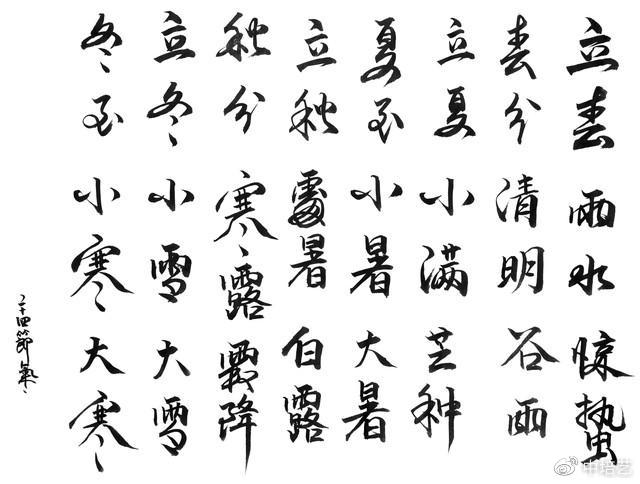 立春 雨水 惊蛰
春分 清明 谷雨
立夏 小满 芒种
夏至 小暑 大暑
立秋 處暑 白露
秋分 寒露 霜降
立冬 小雪 大雪
冬至 小寒 大寒
二十四節氣
@中培艺